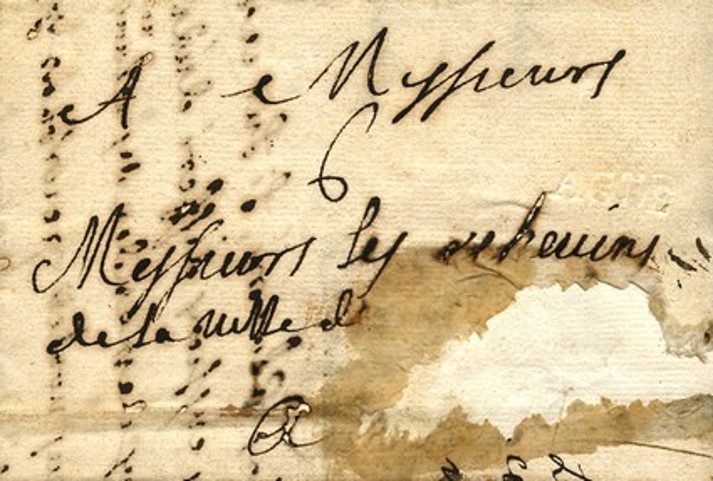 A Messieurs
6
Messieurs les eschevins
de la ville d
A